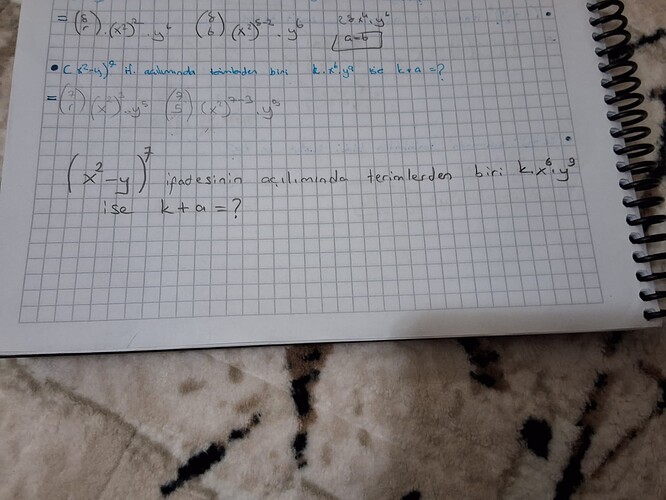 = (8 r) . (x²)² . y⁶ (8 6) (x²)⁸⁻² . y⁶ 28x⁴ . y⁶
a=6
• (x²-y)⁷ if. açılımında terimlerden biri k.x⁶.y⁹ ise k+a=?
= (7 r) (x²)⁷ . y⁵ (7 5) . (x²)⁷⁻³ . y⁵
(x²-y)⁷ ifadesinin açılımında terimlerden biri k.x⁶.y⁹
ise k+a=?